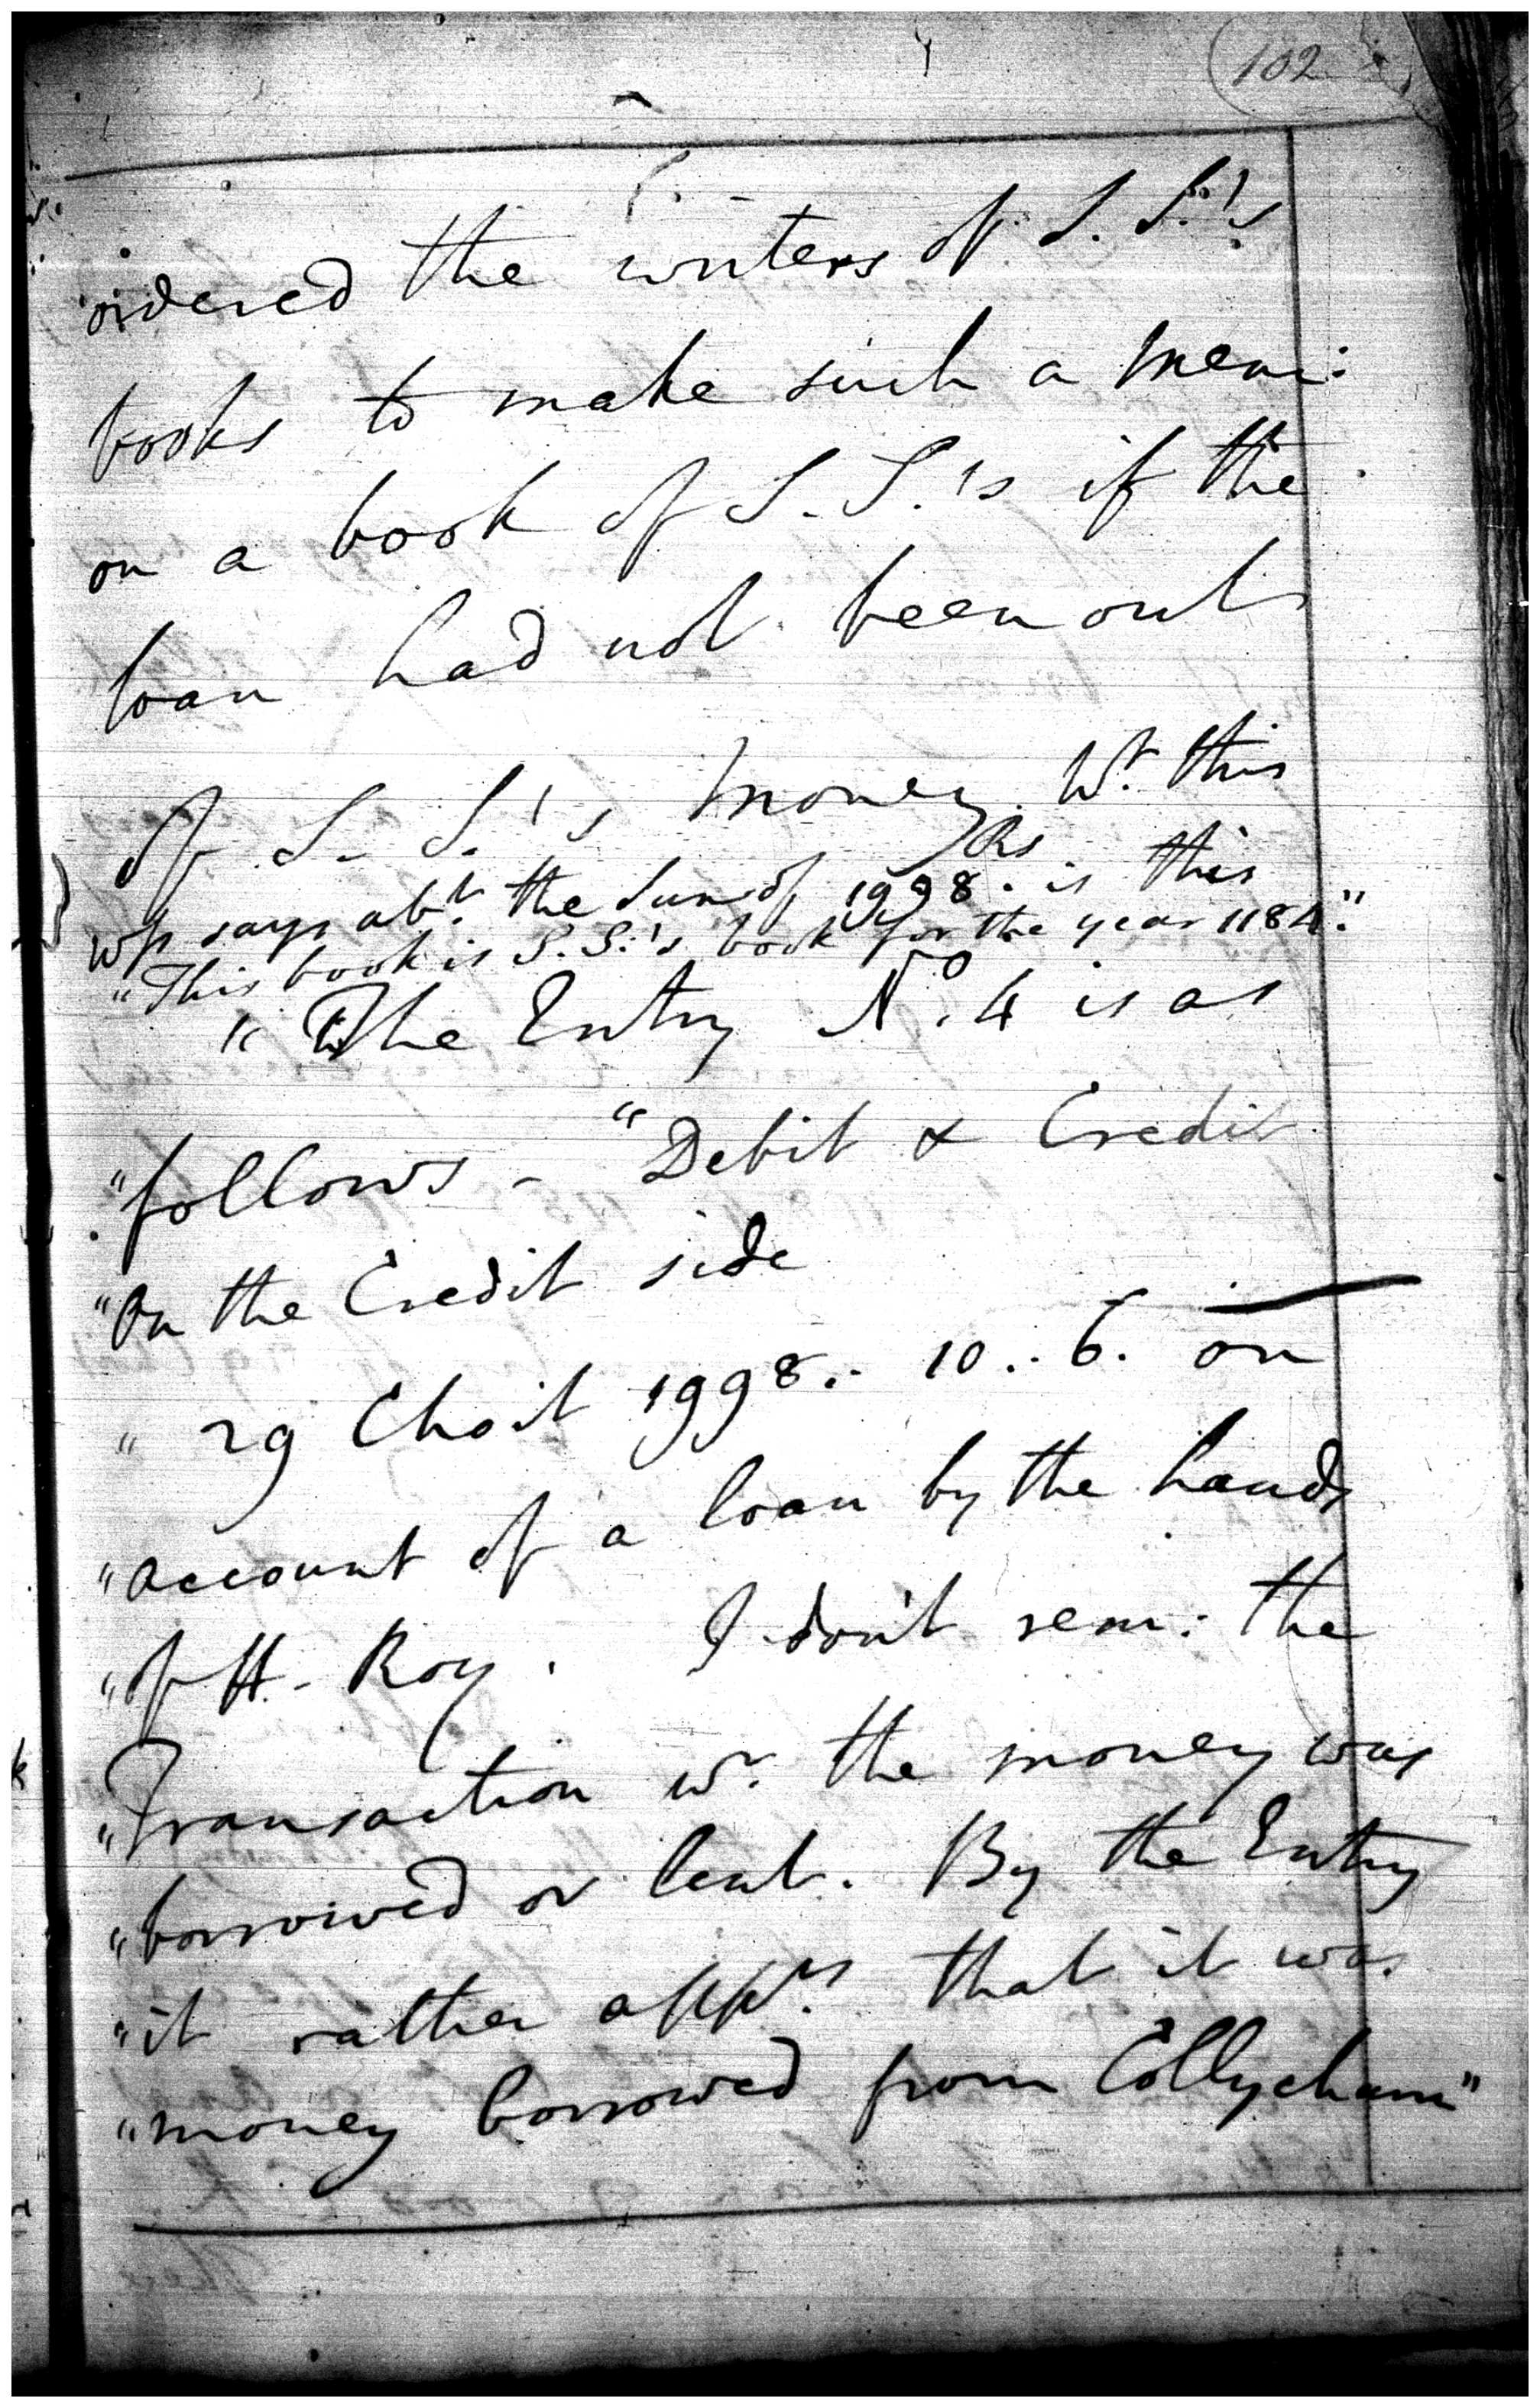 102
ordered the writers of S. S.'s
books to make such a mem:
on a book of S. S.'s if the
loan had not been out
of S. S.'s money. Wt. this
Rs
wss says abt. the Sum of 1998. is this
"This book is S. S.'s book for the year 1184."
"The Entry No. 4 is as
"follows - "Debit & Credit
"On the Credit side
" 29 Choit 1998.. 10.. 6. on
"account of a loan by the hands
"of H. Roy. I don't rem: the
"Transaction wr. the money was
"borrowed or lent. By the Entry
"it rather apprs. that it was
"money borrowed from Collychurn"